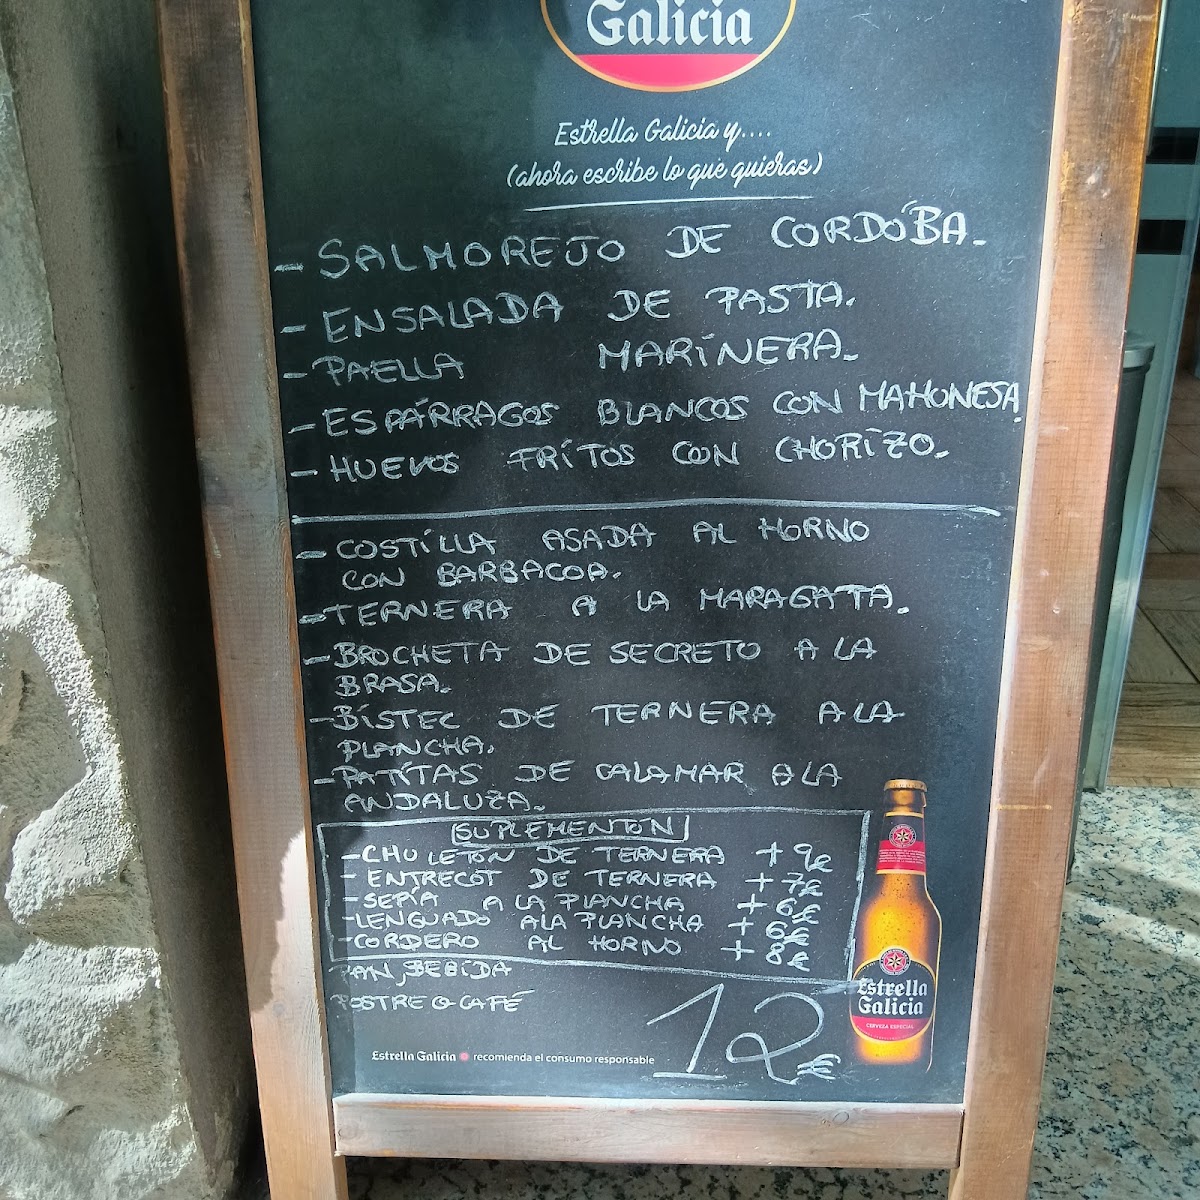 Galicia
Estrella Galicia y....
(ahora escribe lo que quieras)
- SALMOREJO DE CORDÓBA.
- ENSALADA DE PASTA.
- PAELLA MARINERA.
- ESPÁRRAGOS BLANCOS CON MAHONESA
- HUEVOS FRITOS CON CHORIZO.
- COSTILLA ASADA AL HORNO
CON BARBACOA.
- TERNERA A LA MARAGATA.
- BROCHETA DE SECRETO A LA
BRASA.
- BISTEC DE TERNERA A LA
PLANCHA.
- PATITAS DE CALAMAR A LA
ANDALUZA.
SUPLEMENTON
- CHULETÓN DE TERNERA + 9€
- ENTRECOT DE TERNERA + 7€
- SEPIA A LA PLANCHA + 6€
- LENGUADO A LA PLANCHA + 6€
- CORDERO AL HORNO + 8€
PAN, BEBIDA
POSTRE O CAFÉ
12€
Estrella
Galicia
CERVEZA ESPECIAL
Estrella Galicia recomienda el consumo responsable